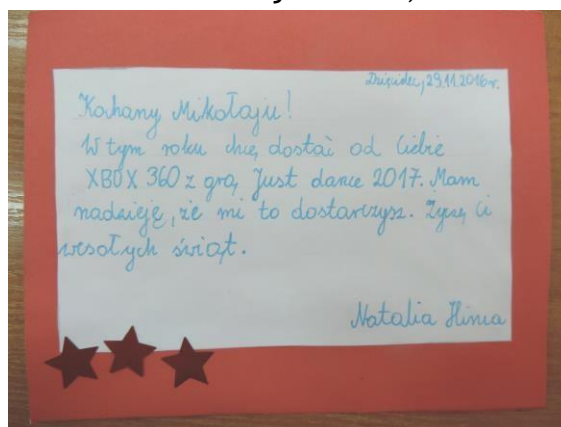 29.11.2016r.
Kochany Mikołaju!
W tym roku chcę dostać od Ciebie
XBOX 360 z grą Just dance 2017. Mam
nadzieję, że mi to dostarczysz. Życzę Ci
wesołych świąt.
Natalia